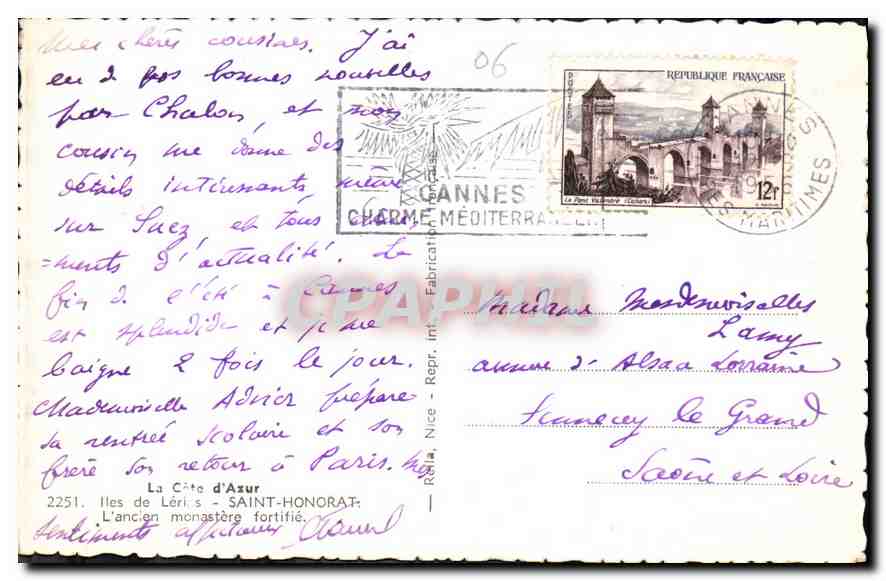 Mes chères cousines. J'ai
eu de vos bonnes nouvelles
par Chalon, et mon
cousin me donne des
détails intéressants, même
sur Suez, et tous
=ments d'actualité. La
fin de l'été à Cannes
est splendide et je me
baigne 2 fois le jour.
Mademoiselle Advier prépare
sa rentrée scolaire et son
frère son retour à Paris. Mes
sentiments affectueux
La Côte d'Azur
2251. Iles de Lérins - SAINT-HONORAT
L'ancien monastère fortifié.
Rella, Nice - Repr. int. - Fabrication Française
06
CANNES
CHARME MÉDITERRANÉEN
POSTES
RÉPUBLIQUE FRANÇAISE
Le Pont Valentré (Cahors)
12F
CANNES
MARITIMES
CPAPHIL
Madame Mesdemoiselles
Lamy
avenue d'Alsace Lorraine
Sennecey le Grand
Saône et Loire